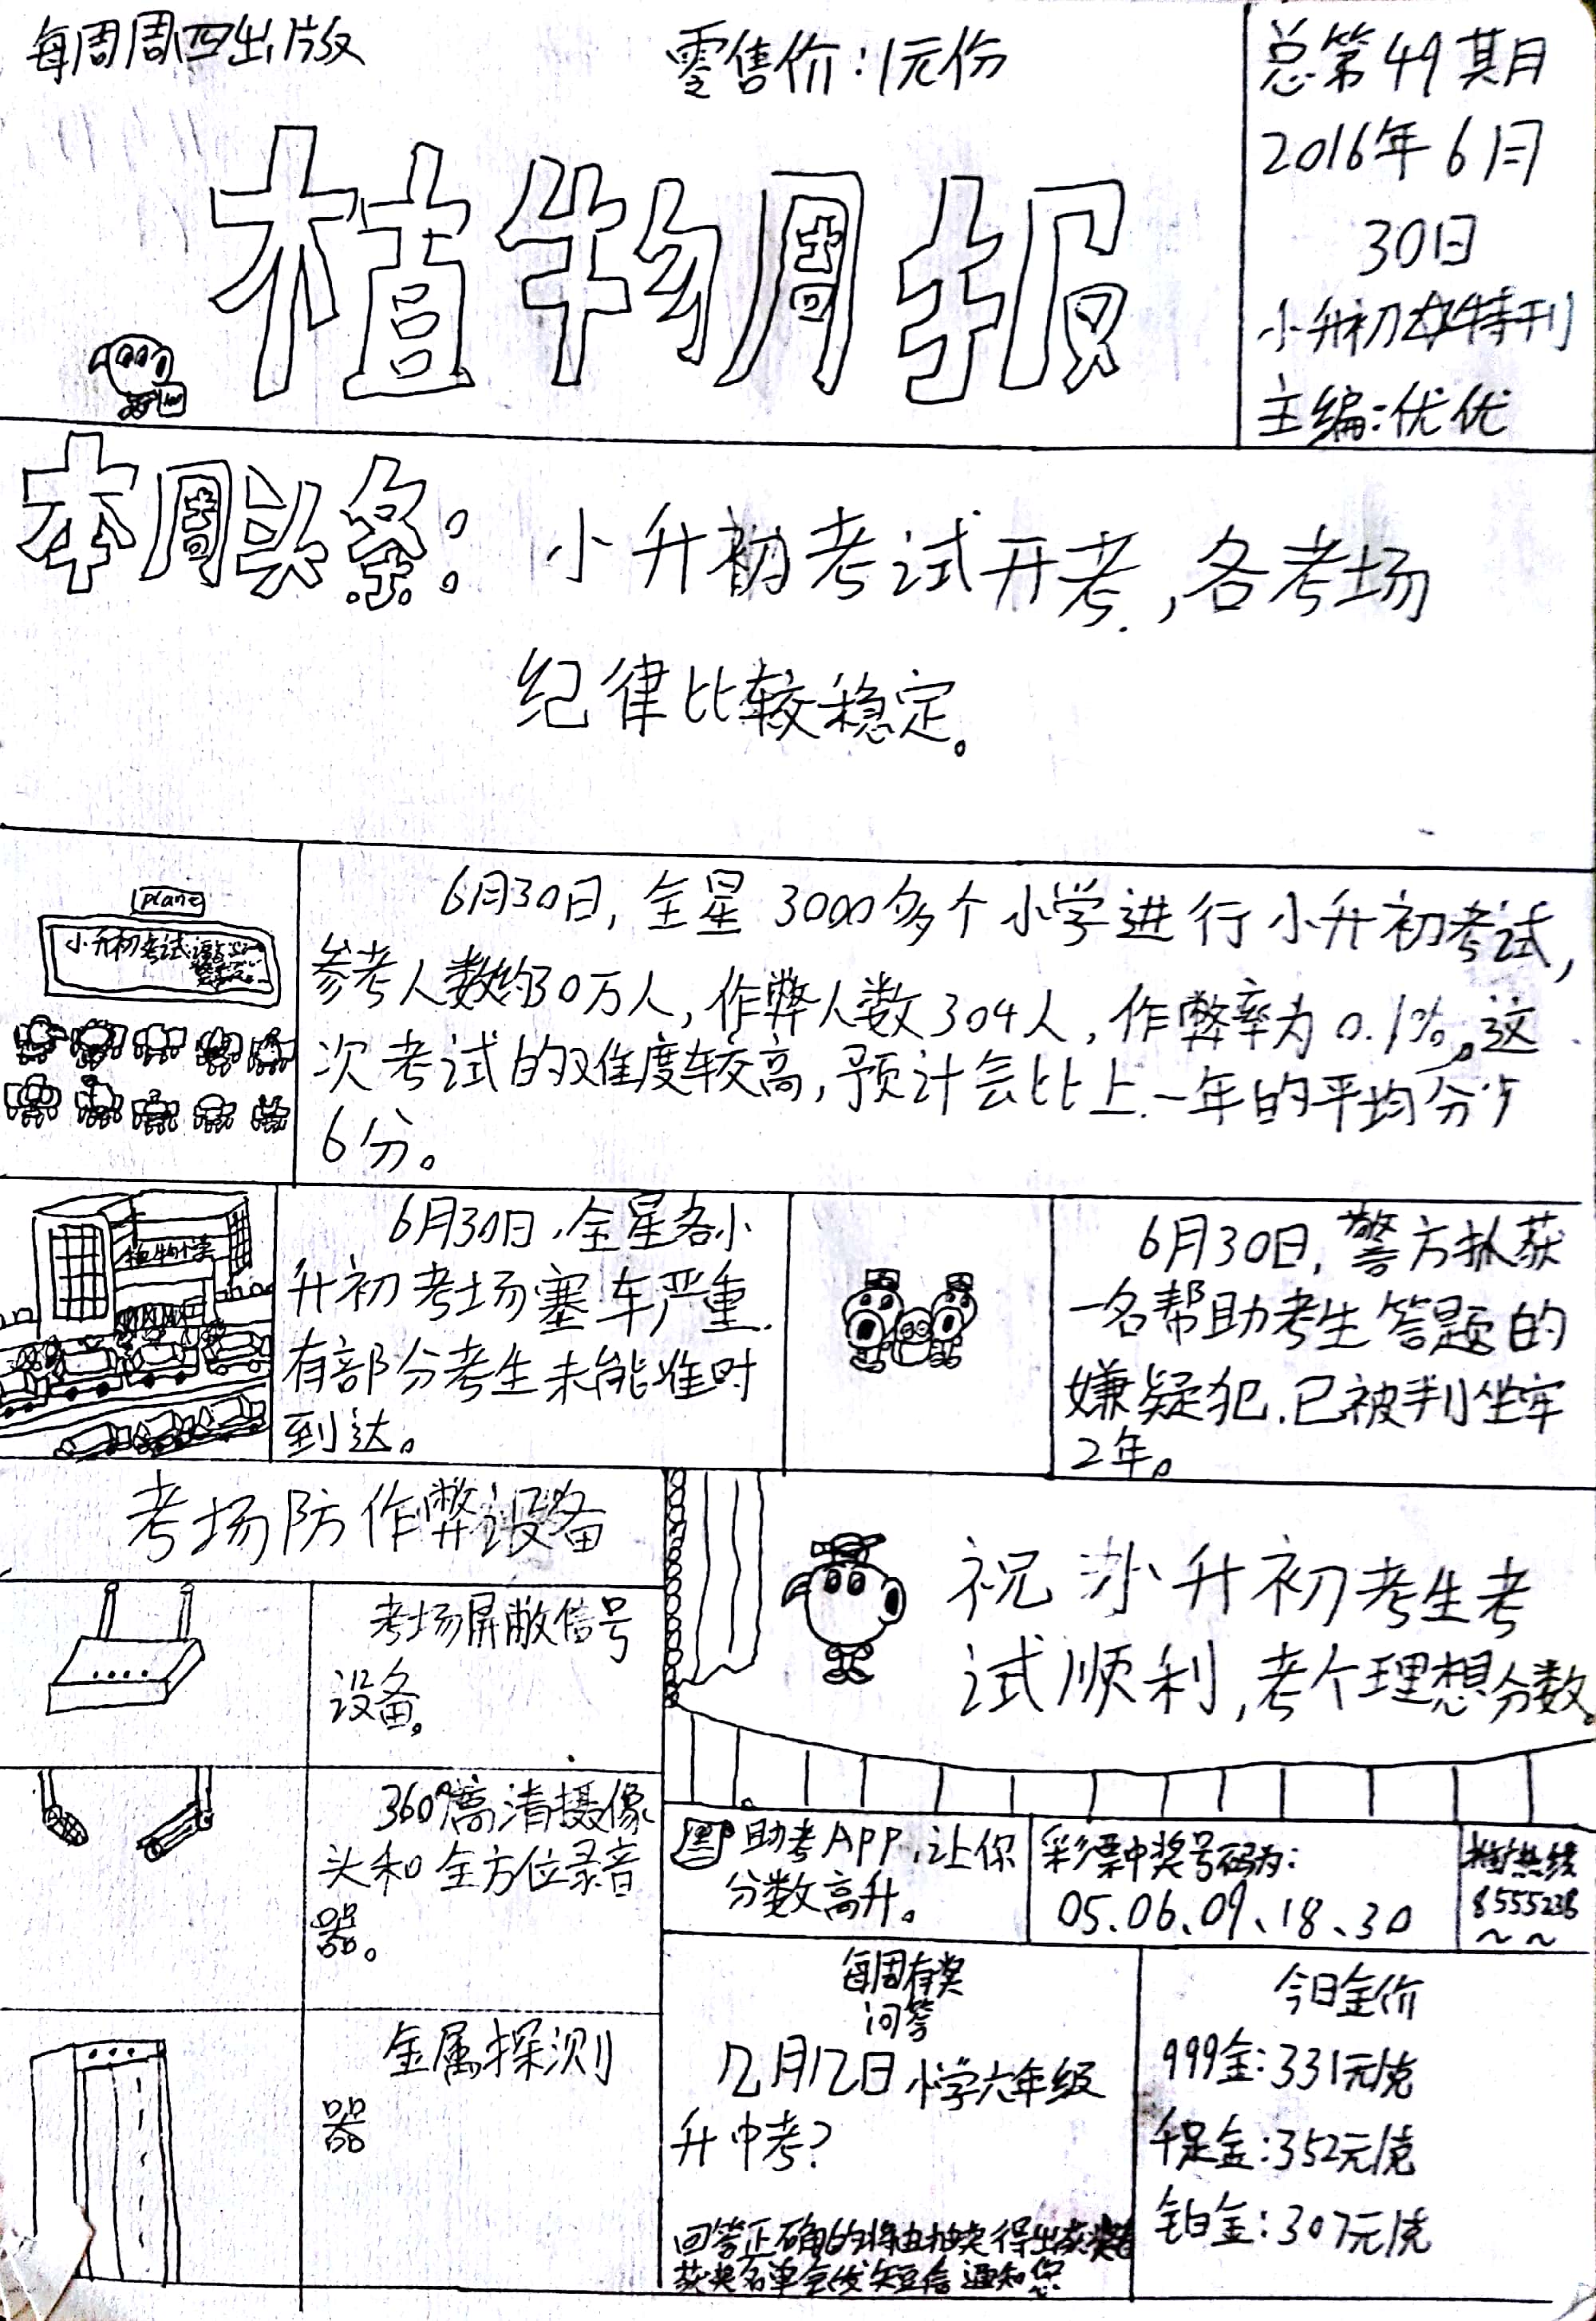 每周周四出版
零售价:1元份
总第49期
2016年6月
30日
小升初特刊
主编:优优
植物周报
本周头条:
小升初考试开考,各考场
纪律比较稳定。
plane
小升初考试
6月30日,全星3000多个小学进行小升初考试,
参考人数约30万人,作弊人数304人,作弊率为0.1%。这
次考试的难度较高,预计会比上一年的平均分少
6分。
植物小学
6月30日,全星各小
升初考场塞车严重.
有部分考生未能准时
到达。
6月30日,警方抓获
一名帮助考生答题的
嫌疑犯.已被判坐牢
2年。
考场防作弊设备
考场屏蔽信号
设备。
360°高清摄像
头和全方位录音
器。
金属探测
器
祝小升初考生考
试顺利,考个理想分数。
助考APP,让你
分数高升。
彩票中奖号码为:
05、06、09、18、30
热线
8555238
~ ~
每周有奖
问答
12月12日小学六年级
升中考?
回答正确的将由抽奖得出获奖者
获奖名单会发短信通知您
今日金价
999金:331元/克
千足金:352元/克
铂金:307元/克